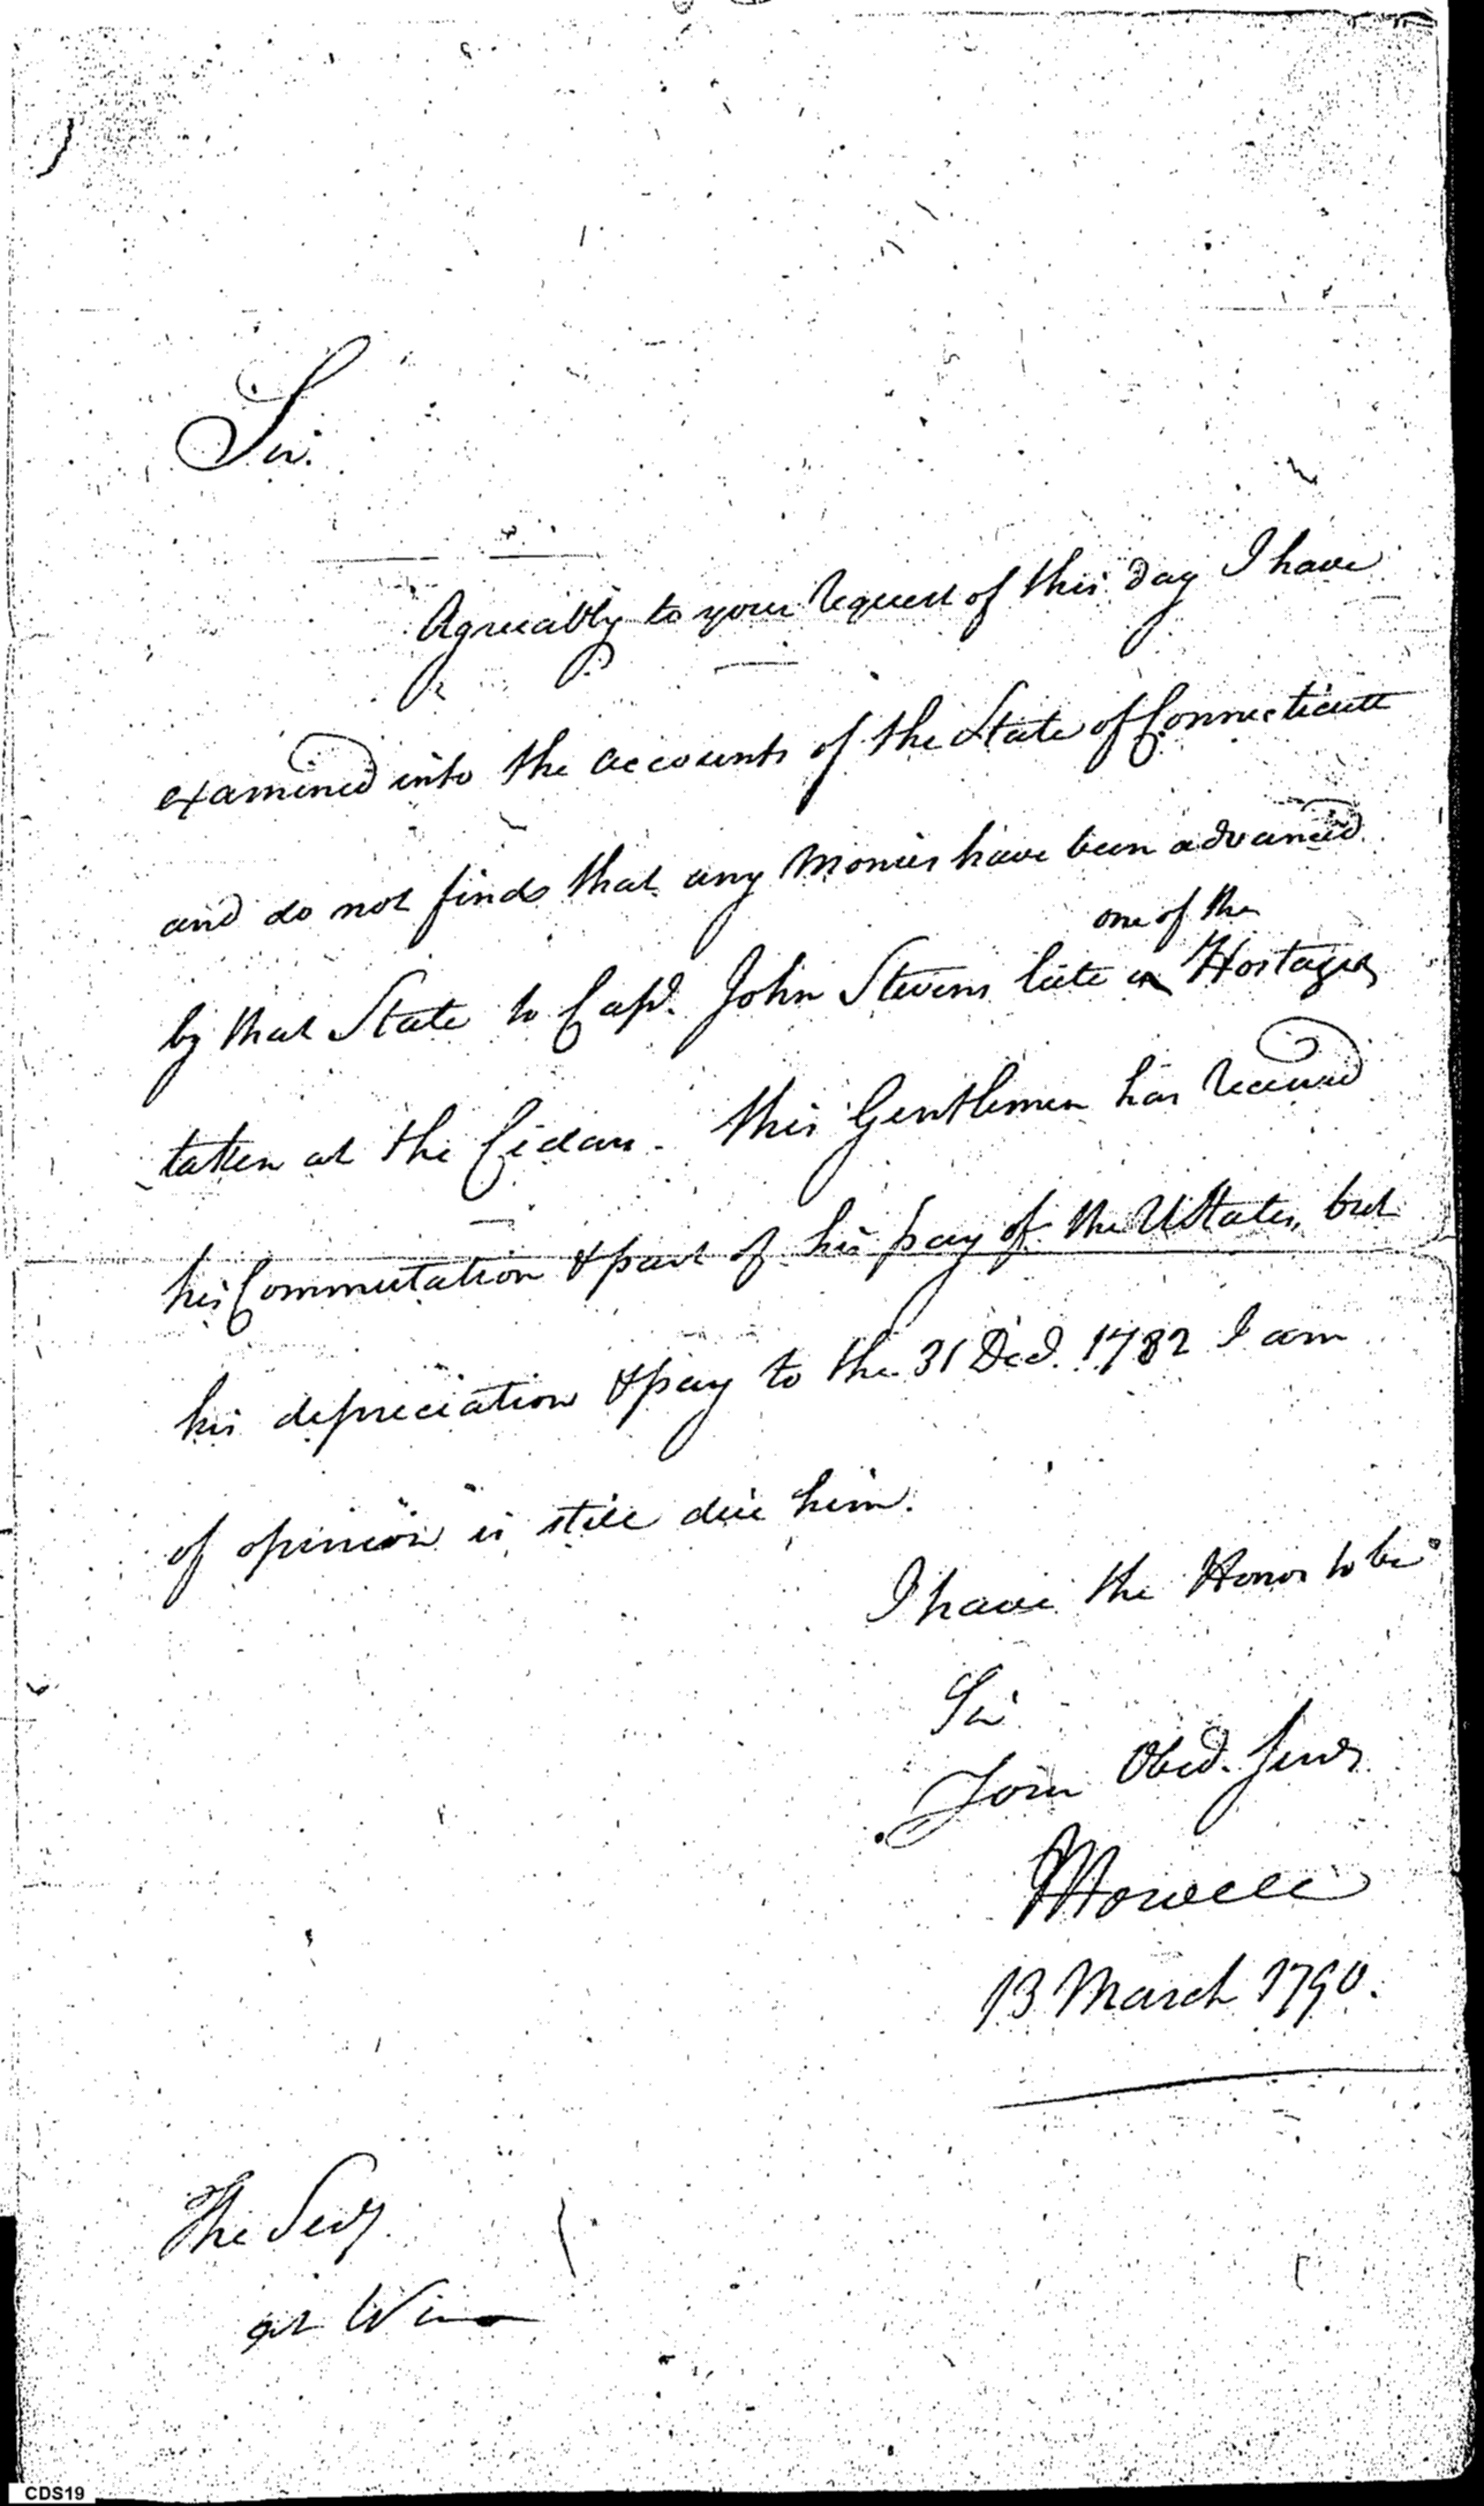 Sir.
Agreeably to your request of this day I have
examined into the accounts of the State of Connecticutt
and do not find that any monies have been advanced
one of the
by that State to Capt. John Stevens late a Hostages
taken at the Cedars. this Gentlemen has received
his Commutation & part of his pay of the UStates, but
his depreciation & pay to the 31 Decr. 1782 I am
of opinion is still due him.
I have the Honor to be
Sir
Your Obed. Servt
JHowell
13 March 1790.
The Secy
at War
CDS19